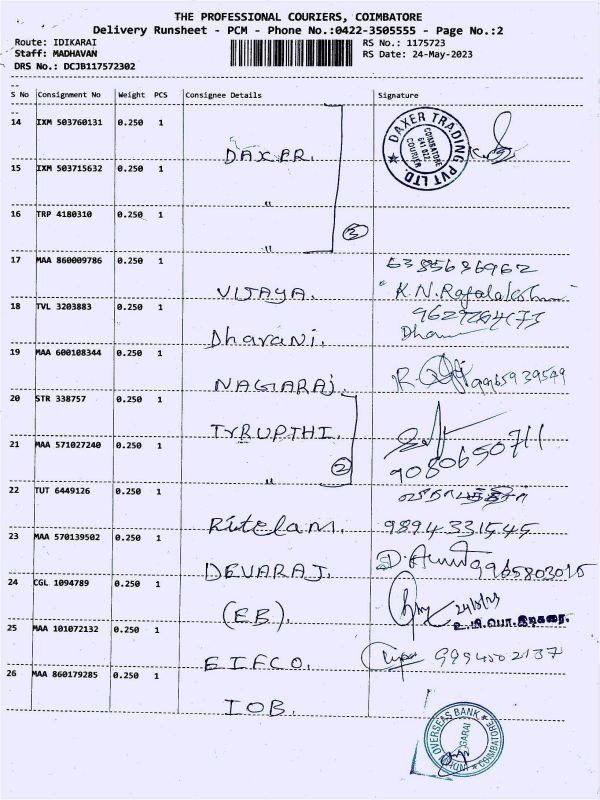 THE PROFESSIONAL COURIERS, COIMBATORE
Delivery Runsheet - PCM - Phone No.:0422-3505555 - Page No.:2
Route: IDIKARAI
RS No.: 1175723
Staff: MADHAVAN
RS Date: 24-May-2023
DRS No.: DCJB117572302
S No Consignment No Weight PCS Consignee Details Signature
14 IXM 503760131 0.250 1 DAXER.
DAXER TRADING PVT LTD.
COIMBATORE
641 022
COURIER
15 IXM 503715632 0.250 1 "
16 TRP 4180310 0.250 1 " 3
17 MAA 860009786 0.250 1 VIJAYA. 6385686962
K.N.Rajalakshmi
18 TVL 3203883 0.250 1 Dharani.
19 MAA 600108344 0.250 1 NAGARAJ. 9965939549
20 STR 338757 0.250 1 TYRUPTHI.
21 MAA 571027240 0.250 1 " 2 9080650711
22 TUT 6449126 0.250 1 Ritelam. 9894331545
23 MAA 570139502 0.250 1 DEVARAJ. 9965803015
24 CGL 1094789 0.250 1 (EB). 24/5/23
25 MAA 101072132 0.250 1 EIFCO. 9994502137
26 MAA 860179285 0.250 1 IOB.
INDIAN OVERSEAS BANK
COIMBATORE